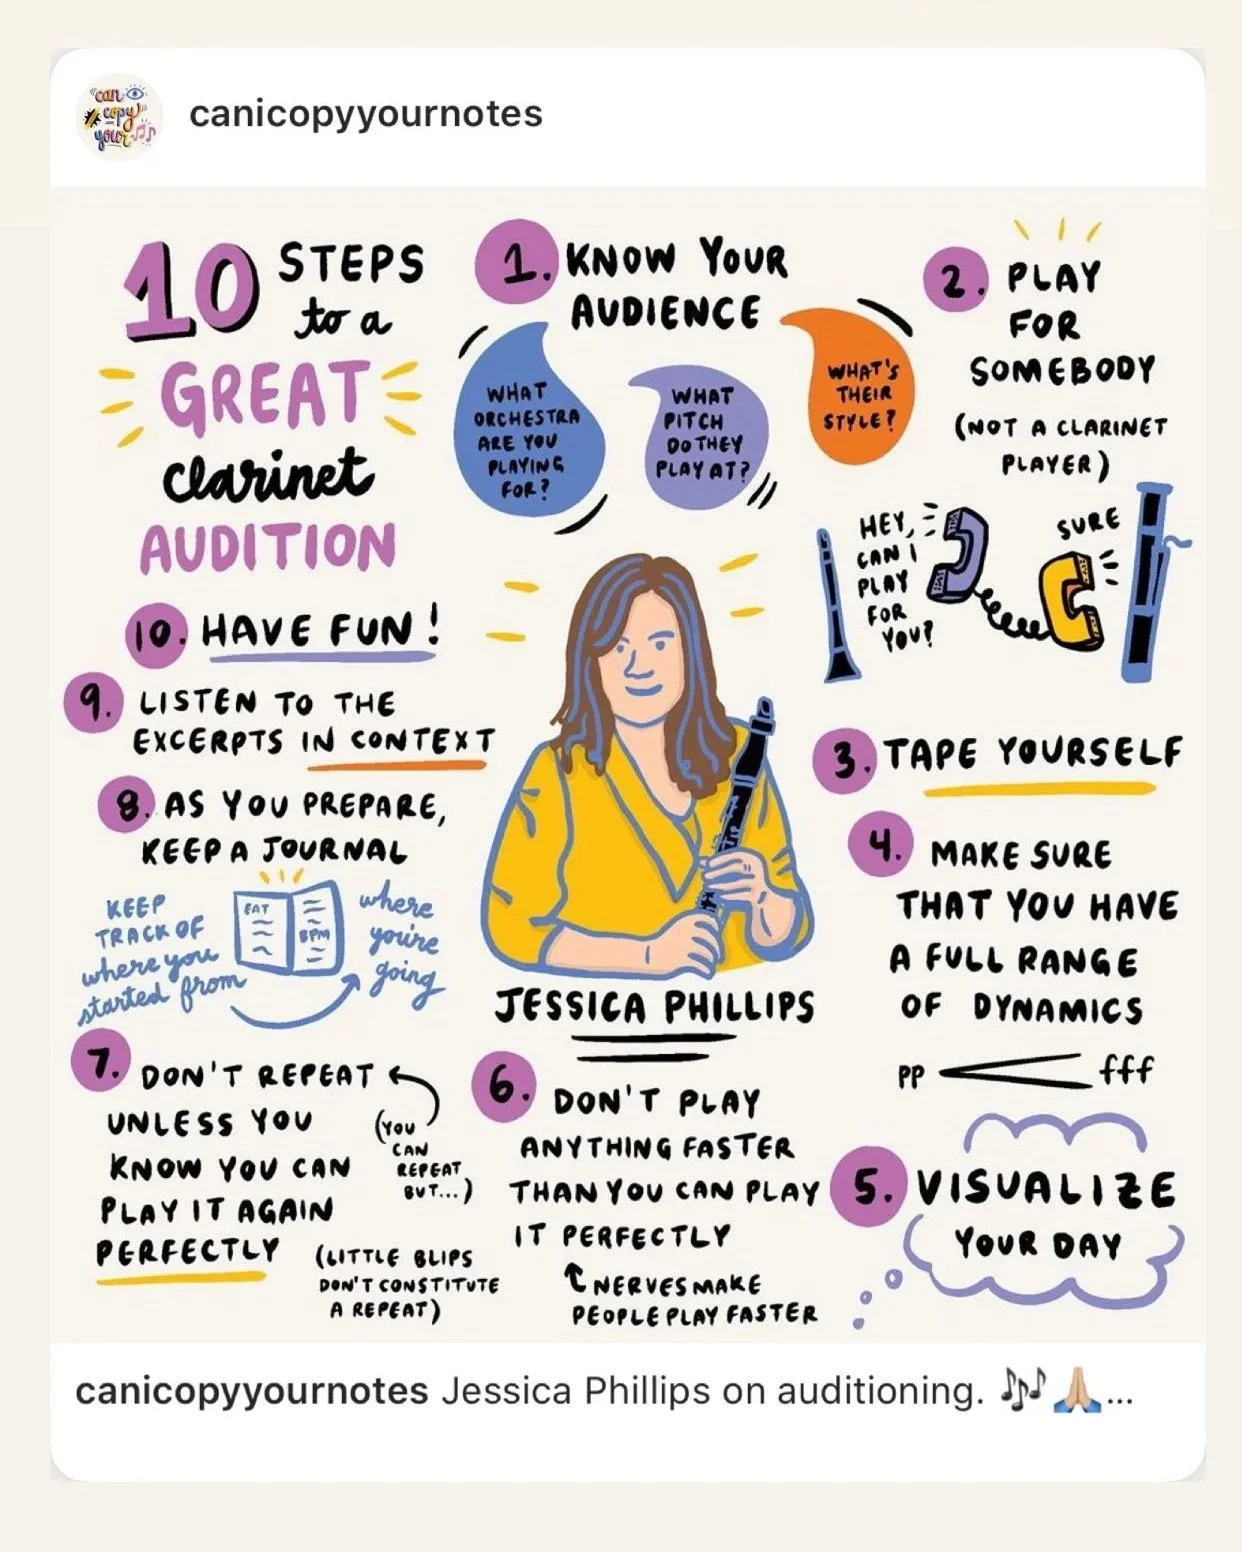 "can
copy
your
canicopyyournotes
10 STEPS
to a
GREAT
clarinet
AUDITION
1. KNOW YOUR
AUDIENCE
WHAT
ORCHESTRA
ARE YOU
PLAYING
FOR?
WHAT
PITCH
DO THEY
PLAY AT?
WHAT'S
THEIR
STYLE?
2. PLAY
FOR
SOMEBODY
(NOT A CLARINET
PLAYER)
HEY,
CAN I
PLAY
FOR
YOU?
SURE
3. TAPE YOURSELF
4. MAKE SURE
THAT YOU HAVE
A FULL RANGE
OF DYNAMICS
PP fff
5. VISUALIZE
YOUR DAY
6. DON'T PLAY
ANYTHING FASTER
THAN YOU CAN PLAY
IT PERFECTLY
NERVES MAKE
PEOPLE PLAY FASTER
7. DON'T REPEAT
UNLESS YOU
KNOW YOU CAN
PLAY IT AGAIN
PERFECTLY
(YOU
CAN
REPEAT
BUT...)
(LITTLE BLIPS
DON'T CONSTITUTE
A REPEAT)
8. AS YOU PREPARE,
KEEP A JOURNAL
KEEP
TRACK OF
where you
started from
EAT
BPM
where
you're
going
9. LISTEN TO THE
EXCERPTS IN CONTEXT
10. HAVE FUN!
JESSICA PHILLIPS
canicopyyournotes Jessica Phillips on auditioning. 🎶🙏🏼...